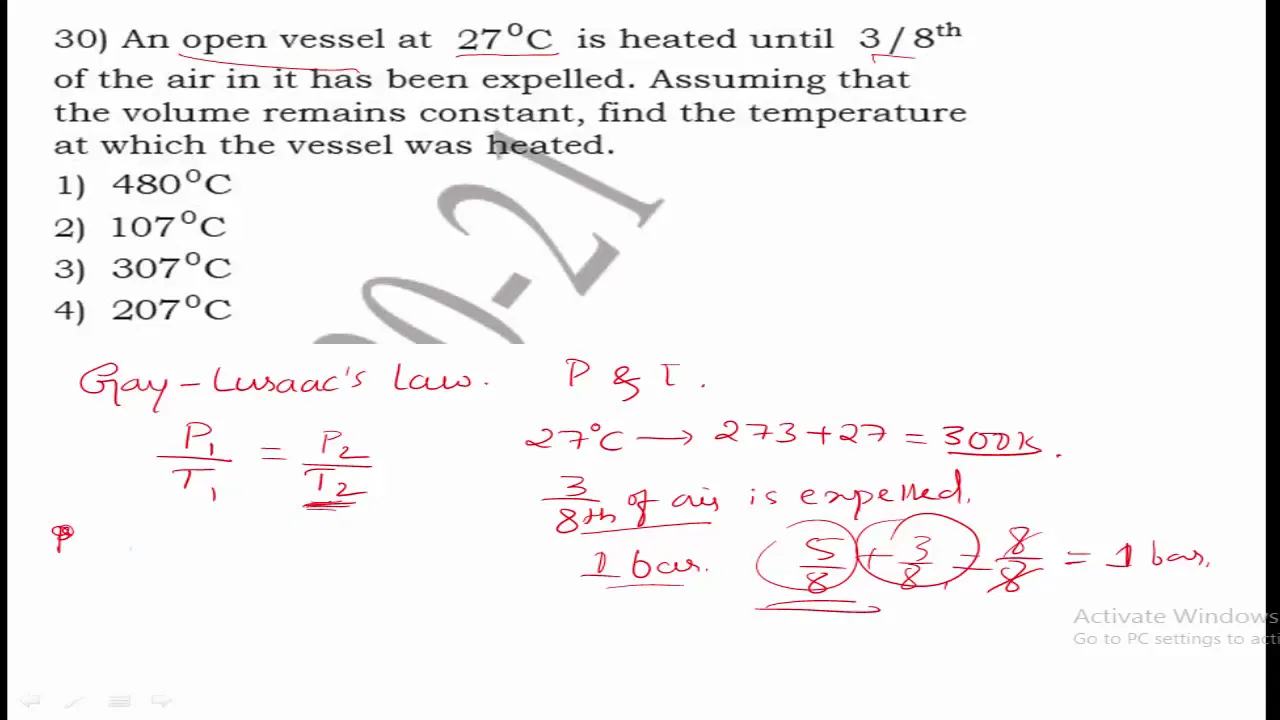 30) An open vessel at 27⁰C is heated until 3/8ᵗʰ
of the air in it has been expelled. Assuming that
the volume remains constant, find the temperature
at which the vessel was heated.
1) 480⁰C
2) 107⁰C
3) 307⁰C
4) 207⁰C
20-21
Gay-Lusaac's Law. P & T.
P₁/T₁ = P₂/T₂
27°C → 273+27 = 300K.
3/8th of air is expelled.
1 bar. 5/8 + 3/8 = 8/8 = 1 bar.
Activate Windows
Go to PC settings to acti